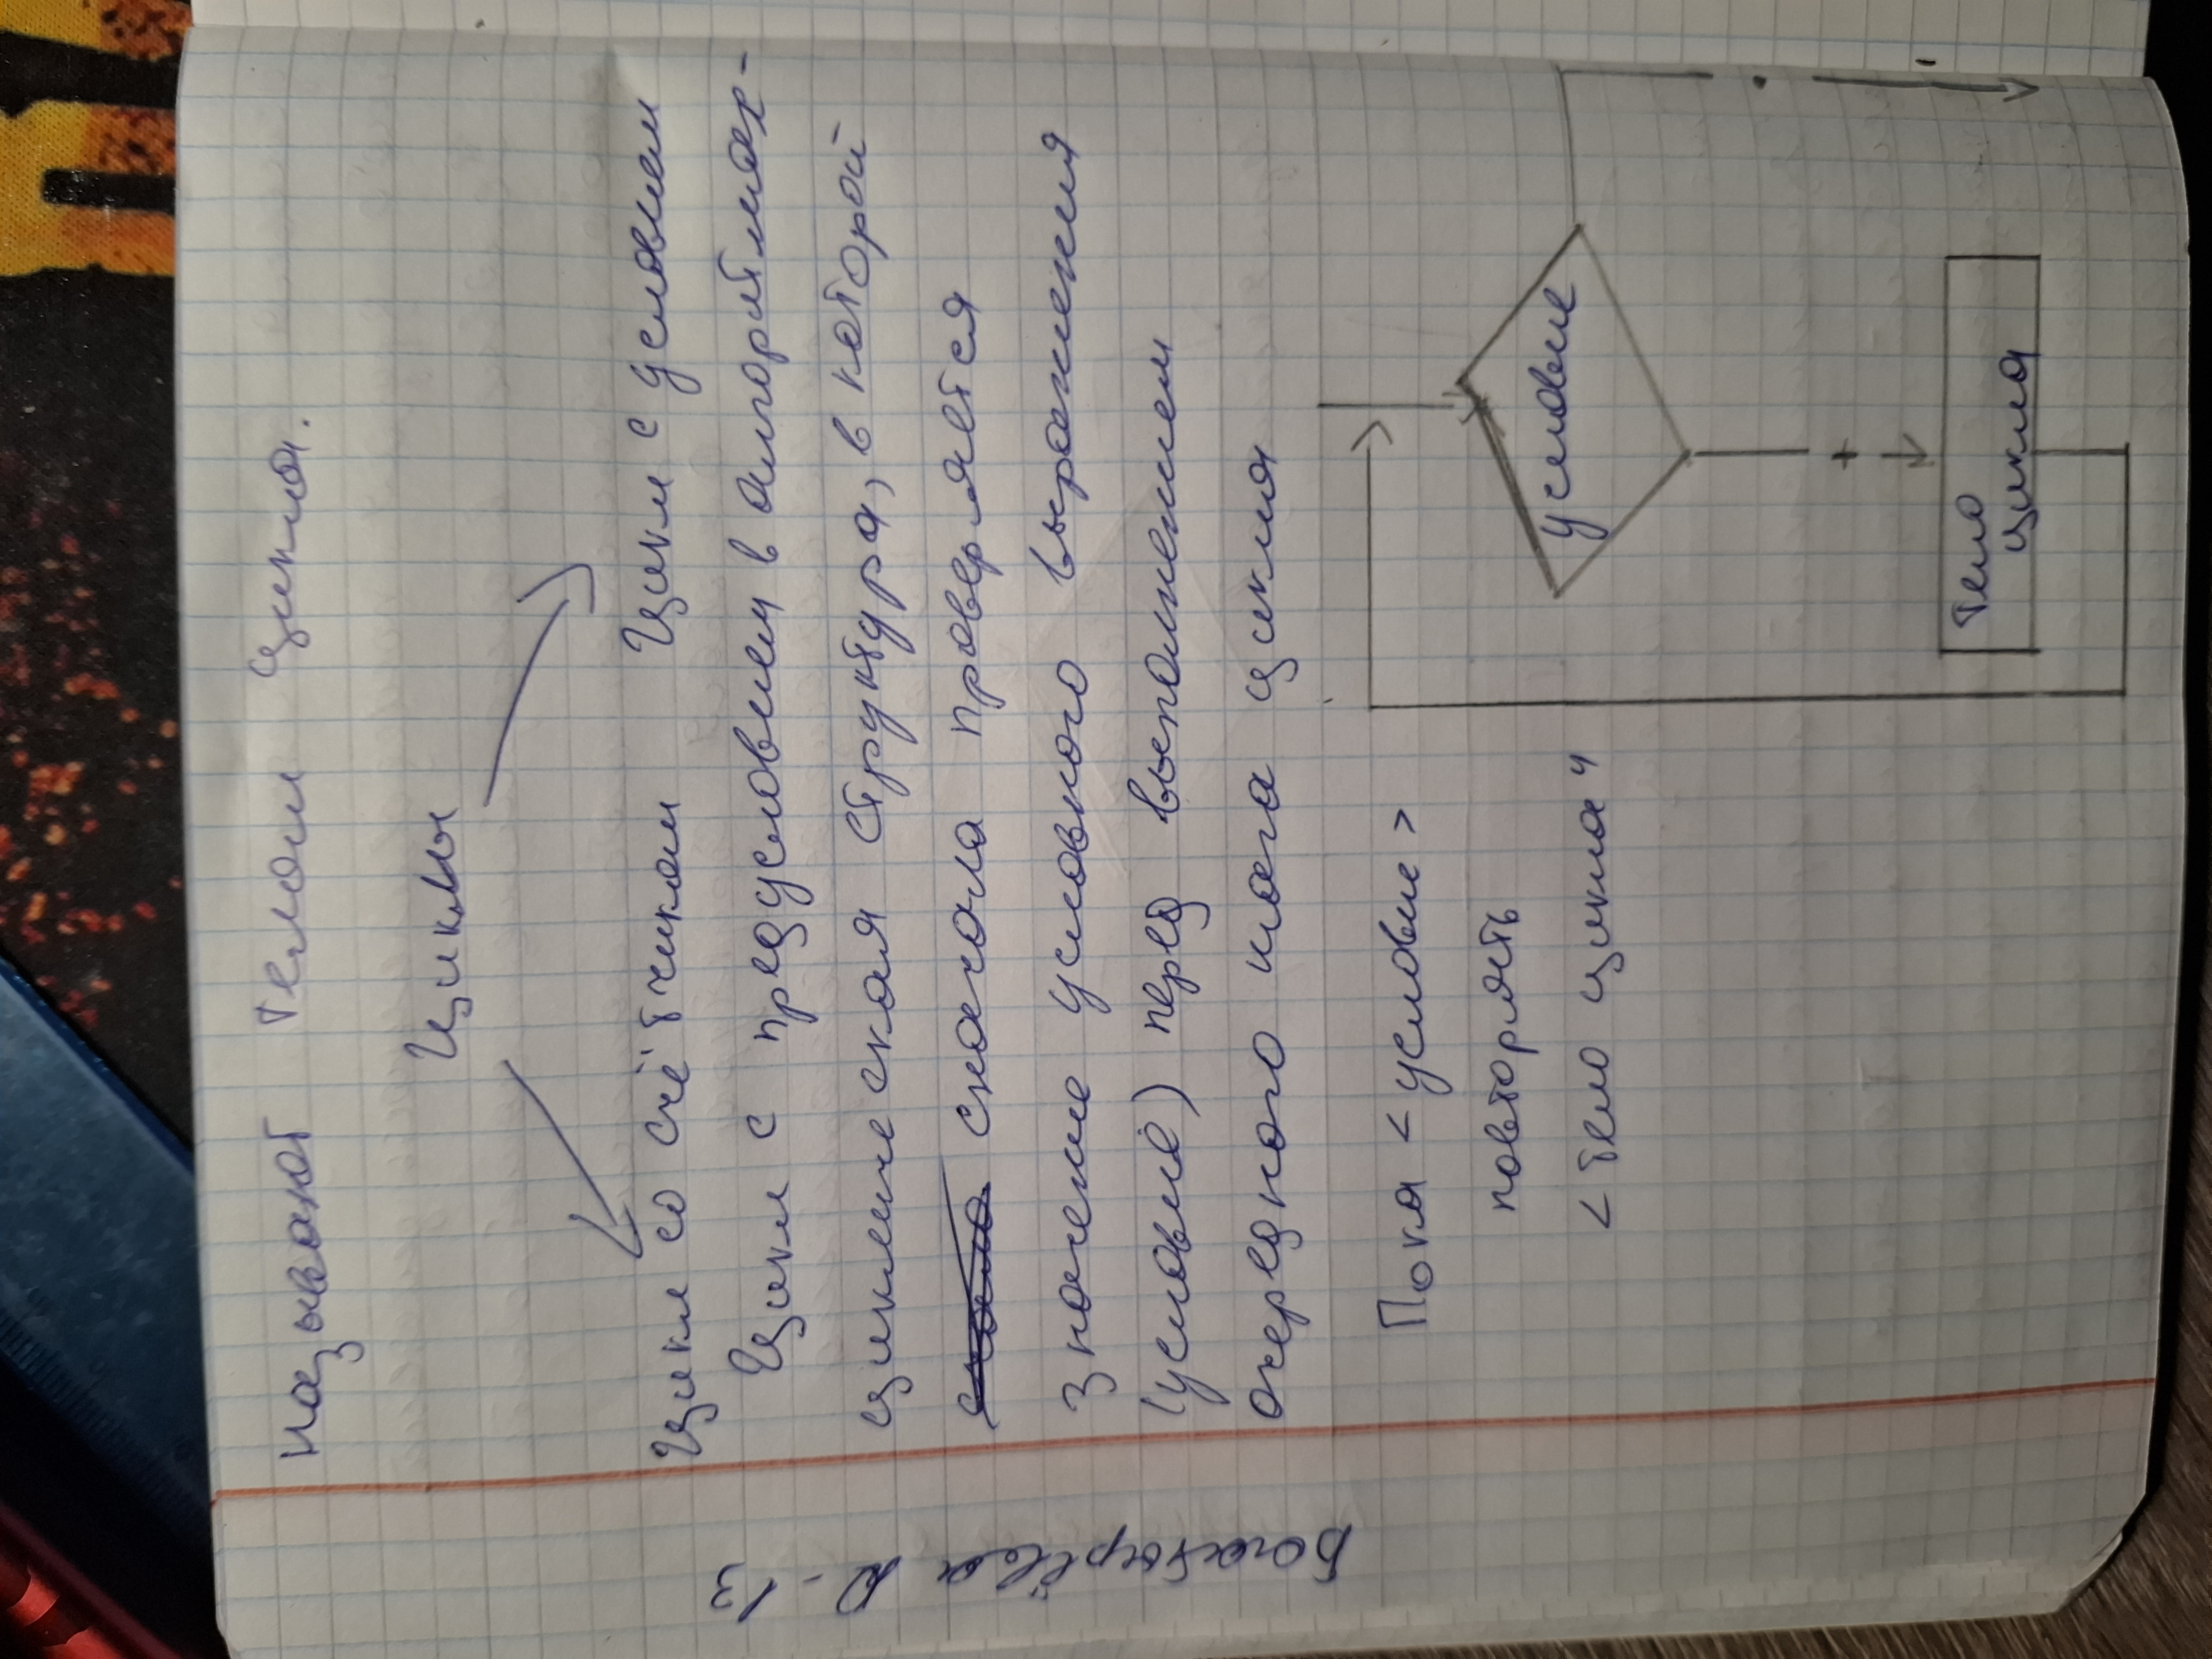 называют телом цикла.
Циклы
Цикл со счётчиком Цикл с условием
Цикл с предусловием в алгоритмах-
циклическая структура, в которой
сначала проверяется
значение условного выражения
(условие) перед выполнением
очередного шага цикла
Пока < условие >
повторять
< тело цикла "
условие
+
-
тело
цикла